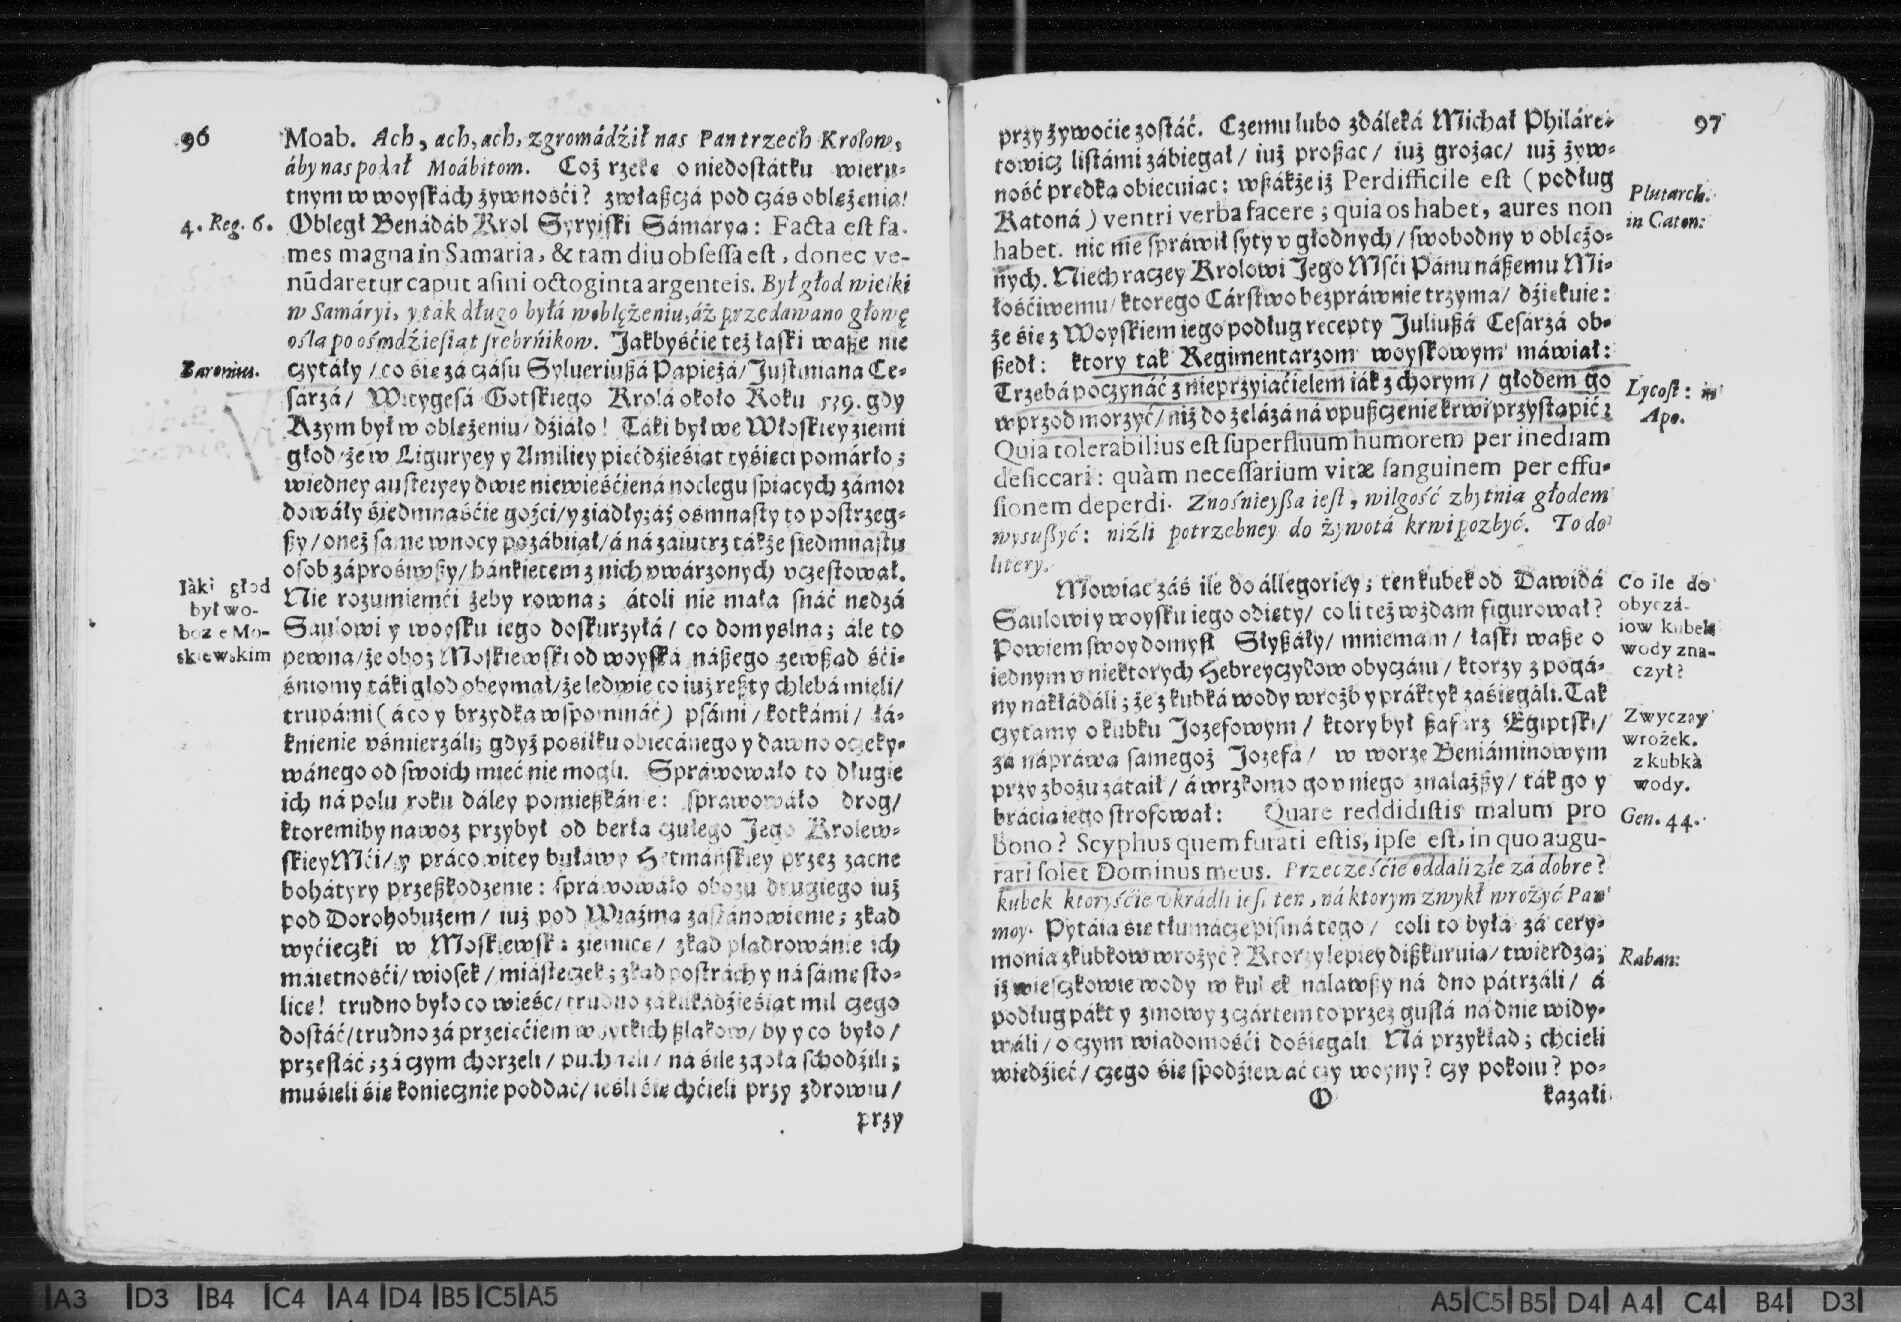 96
Moab. Ach, ach, ach, zgromádźił nas Pan trzech Krolow,
áby nas podał Moábitom. Coż rzekę o niedostátku wieru-
tnym w woyskách żywnośći? zwłaßczá pod czás oblężenia!
4. Reg. 6.
Obległ Benádáb Krol Syryiski Sámáryą: Facta est fa-
mes magna in Samaria, & tam diu obsessa est, donec ve-
nūdaretur caput asini octoginta argenteis. Był głod wielki
w Sámáryi, y ták długo byłá w oblężeniu, áż przedawano głowę
ośla po ośmdźieśiąt srebrńikow. Jákbyśćie też łáski wáße nie
Baronius.
czytáły / co się zá czásu Sylueriußá Papieżá / Justiniana Ce-
sárzá / Witygesá Gotskiego Krolá około Roku 539. gdy
Rzym był w oblężeniu / dźiáło! Táki był we Włoskiey ziemi
głod / że w Liguryey y Æmiliey pięćdźieśiąt tyśięcy pomárło;
w iedney austeryey dwie niewieśćie ná noclegu spiących zámor
dowáły śiedmnaśćie gośći / y ziadły; áż osmnasty to postrzeg-
ßy / oneż same w nocy pozábiiał / á ná záiutrz tákże siedmnastu
osob záprośiwßy / bánkietem z nich vwárzonych vczęstował.
Iáki głod
był w o-
bozie Mo-
skiewskim
Nie rozumiemći żeby rowna; átoli nie máła snáć nędzá
Saulowi y woysku iego doskurzyłá / co domyslna; ále to
pewna / że oboz Moskiewski od woyská nášego zewßąd śći-
śniony táki głod obeymał / że ledwie co iuż reßty chlebá mieli /
trupámi (á co y brzydka wspomináć) psámi / kotkámi / łá-
knienie vśmierzáli; gdyż posiłku obiecánego y dawno oczeky-
wánego od swoich mieć nie mogli. Spráwowáło to długie
ich ná polu roku dáley pomießkánie: spráwowáło drog /
ktoremiby nawoz przybył od berłá czułego Jego Krolew-
skiey Mći / y prácowitey buławy Hetmáńskiey przez zacne
bohátyry przeßkodzenie: spráwowáło obozu drugiego iuż
pod Dorohobużem / iuż pod Wiaźmą zástánowienie; zkąd
wyćieczki w Moskiewską ziemicę / zkąd plądrowánie ich
máiętnośći / wiosek / miásteczek; zkąd postrách y ná sámę sto-
licę! trudno było co wieść / trudno zá kilkádźieśiąt mil czego
dostáć / trudno zá przeięćiem wßytkich ßlákow / by y co było /
przesłáć; zá czym chorzeli / puchnęli / ná śile zgołá schodźili;
muśieli się koniecznie poddáć / ieśli się chćieli przy zdrowiu /
przy
97
przy żywoćie zostáć. Czemu lubo zdáleká Michał Philáre-
towicz listámi zábiegał / iuż proßąc / iuż grożąc / iuż żyw-
ność prędką obiecuiąc: wßákże iż Perdifficile est (podług
Plutarch.
in Caton:
Katoná) ventri verba facere; quia os habet, aures non
habet. nic nie spráwił syty v głodnych / swobodny v oblężo-
nych. Niech ráczey Krolowi Jego Mśći Pánu náßemu Mi-
łośćiwemu / ktorego Cárstwo bezpráwnie trzyma / dźiękuie:
że się z Woyskiem iego podług recepty Juliußá Cesárzá ob-
ßedł: ktory ták Regimentarzom woyskowym máwiał:
Lycost: in
Apo.
Trzebá poczynáć z nieprzyiaćielem iák z chorym / głodem go
wprzod morzyć / niż do żelázá ná vpußczenie krwi przystąpić:
Quia tolerabilius est superfluum humorem per inediam
desiccari: quàm necessarium vitæ sanguinem per effu-
sionem deperdi. Znośnieyßa iest, wilgość zbytnią głodem
wysußyć: niźli potrzebney do żywotá krwi pozbyć. To do
litery.
Co ile do
obyczá-
iow kubek
wody zna-
czył?
Mowiąc záś ile do állegoriey; ten kubek od Dawidá
Saulowi y woysku iego odięty / coli też wżdam figurował?
Powiem swoy domysł. Słyßáły / mniemam / łáski wáße o
iednym v niektorych Hebreyczykow obyczáiu / ktorzy z pogá-
ny nákłádáli; że z kubká wody wrożb y práktyk záśięgáli. Ták
Zwyczay
wrożek.
z kubká
wody.
czytamy o kubku Jozefowym / ktory był ßafarz Egiptski /
zá nápráwą samegoż Jozefá / w worze Beniáminowym
przy zbożu zátáił / á wrzkomo go v niego znalazßy / ták go y
Gen. 44.
bráćią iego strofował: Quare reddidistis malum pro
bono? Scyphus quem furati estis, ipse est, in quo augu-
rari solet Dominus meus. Przecześćie oddali złe zá dobre?
kubek ktoryśćie vkrádli iest ten, ná ktorym zwykł wrożyć Pan
moy. Pytáią się tłumácze pismá tego / coli to byłá zá cery-
Raban:
monia z kubkow wrożyć? Ktorzy lepiey dißkuruią / twierdzą;
iż wießczkowie wody w kubek nalawßy ná dno pátrzáli / á
podług pákt y zmowy z czártem to przez gusłá ná dnie widy-
wáli / o czym wiadomośći dośięgáli. Ná przykład; chcieli
wiedźieć / czego się spodźiewáć czy woyny? czy pokoiu? po-
kazáli